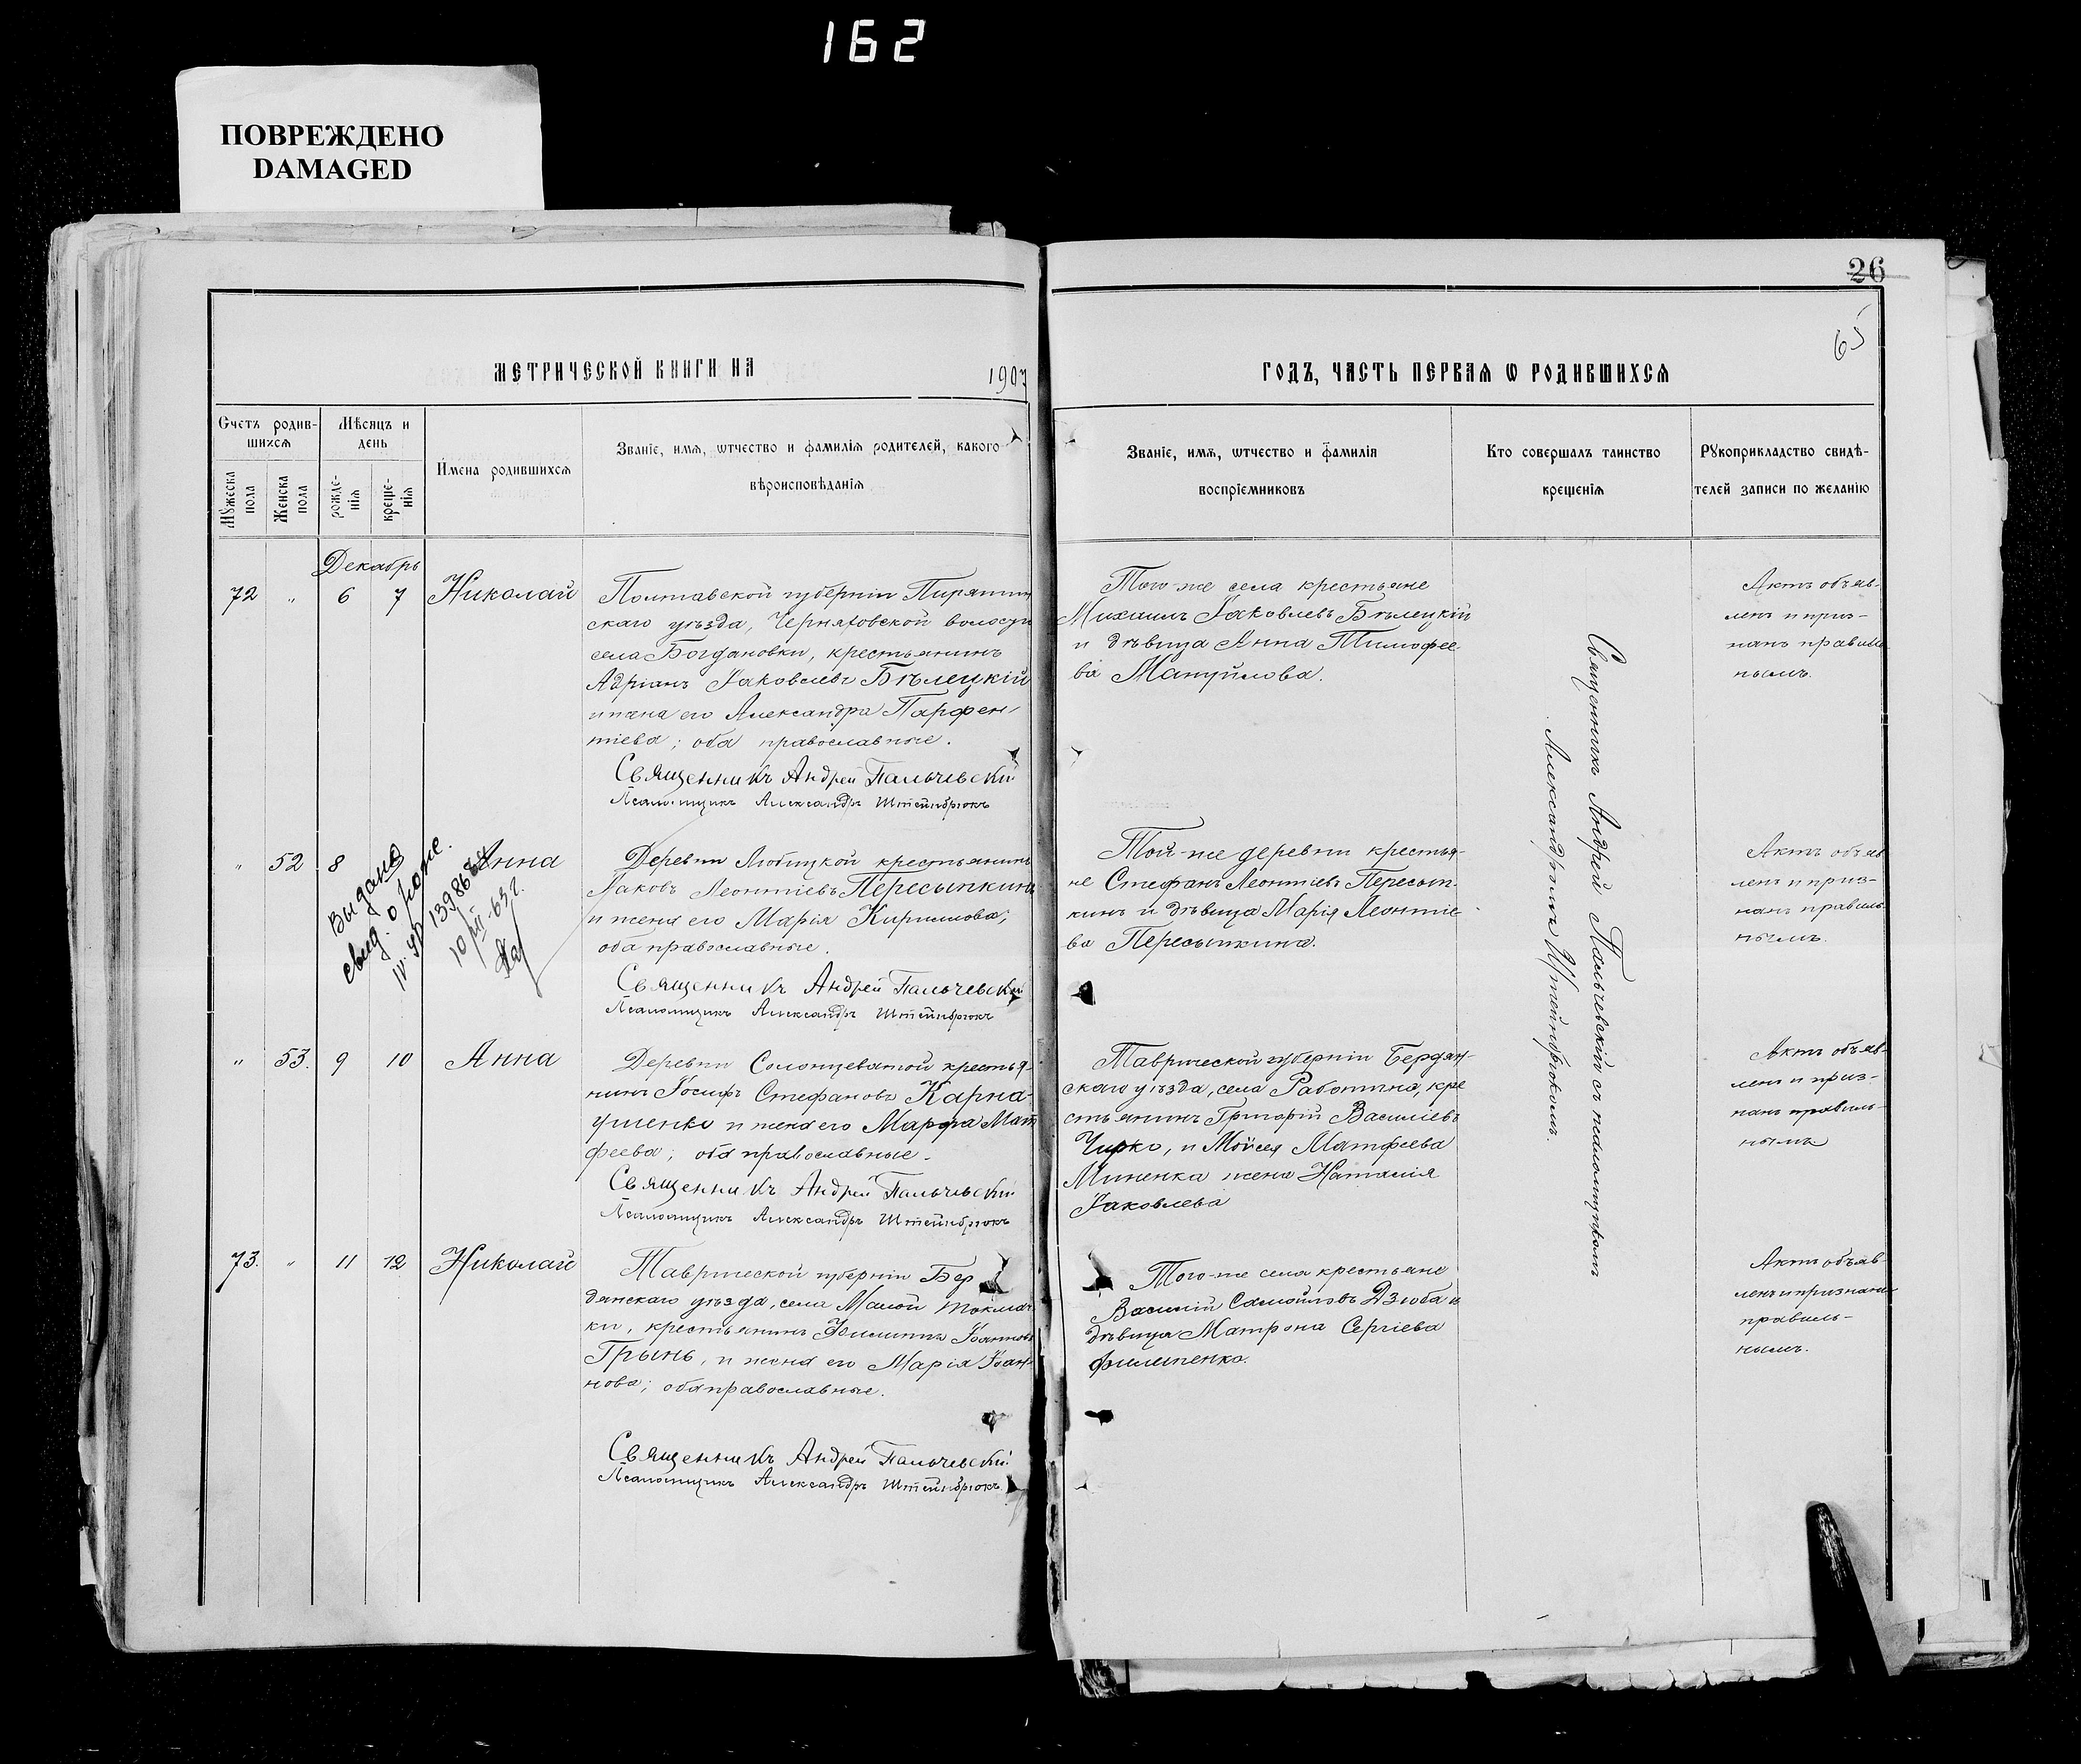 162
ПОВРЕЖДЕНО
DAMAGED
26
65
МЕТРИЧЕСКОЙ КНИГИ НА 1907
ГОДЪ, ЧАСТЬ ПЕРВАЯ Ѡ РОДИВШИХСЯ
Счетъ родив-
шихся
Мꙋжеска
пола
Женска
пола
Мѣсяцъ и
день
рожде-
нія
креще-
нія
Имена родившихся
Званіе, имя, ѿчество и фамилія родителей, какого
вѣроисповѣданія
Званіе, имя, ѿчество и фамилія
воспріемниковъ
Кто совершалъ таинство
крещенія
Рꙋкоприкладство свидѣ-
телей записи по желанію
Декабрь
72 " 6 7 Николай
Полтавской губерніи Пирятин
скаго уѣзда, Черняховской волости
села Богдановки, крестьянинъ
Адріанъ Іаковлевъ Бѣлецкій
и жена его Александра Парфен-
тіева; оба православные.
Священникъ Андрей Пальчевский
Псаломщикъ Александръ Штейнбрюкъ
Того-же села крестьяне
Михаилъ Іаковлевъ Бѣлецкій
и дѣвица Анна Тимофее-
ва Мануйлова.
Актъ объяв-
ленъ и приз-
нанъ правиль
нымъ.
" 52 8 Анна
Выдано
свид. о рожде.
10/VII-63г.
Деревни Любицкой крестьянинъ
Іаковъ Леонтіевъ Пересыпкинъ
и жена его Марія Кириллова;
оба православные.
Священникъ Андрей Пальчевский
Псаломщикъ Александръ Штейнбрюкъ
Той-же деревни крестья-
не Стефанъ Леонтіевъ Пересып-
кинъ и дѣвица Марія Леонтіе-
ва Пересыпкина.
Актъ объяв
ленъ и приз-
нанъ правиль-
нымъ.
" 53. 9 10 Анна
Деревни Солонцеватой крестья-
нинъ Іосифъ Стефановъ Карна-
ушенко и жена его Марфа Мат
феева; оба православные.
Священникъ Андрей Пальчевский
Псаломщикъ Александръ Штейнбрюкъ
Таврической губерніи Бердян-
скаго уѣзда, села Работина, кре
стьянинъ Григорій Василіевъ
Чирко, и Мойсея Матфеева
Миненка жена Наталія
Іаковлева
Актъ объяв-
ленъ и приз-
нанъ правиль-
нымъ
73. " 11 12 Николай
Таврической губерніи Бер
дянскаго уѣзда, села Малой Токмач-
ки, крестьянинъ Филиппъ Іоанновъ
Грынь, и жена его Марія Іоан-
нова; оба православные.
Священникъ Андрей Пальчевский
Псаломщикъ Александръ Штейнбрюкъ
Того-же села крестьяне
Василій Самойловъ Дзюба и
дѣвица Матрона Сергіева
Филипенко.
Актъ объяв-
ленъ и признанъ
правиль-
нымъ.
Священникъ Андрей Пальчевскій съ псаломщикомъ
Александромъ Штейнбрюкомъ.